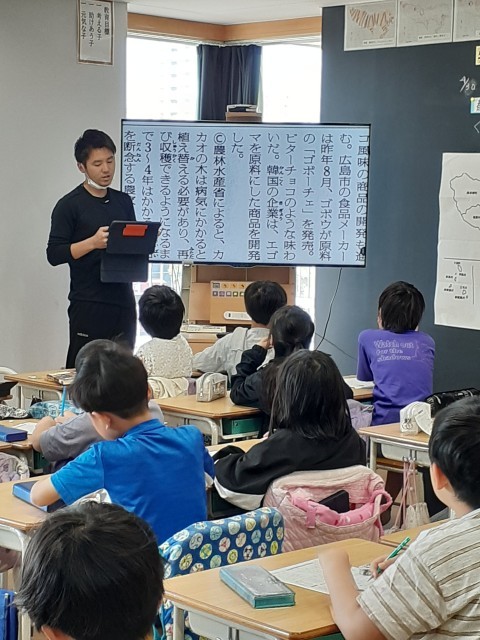 教育目標
考える子
助けあう子
元気な子
コ風味の商品の開発も進
む。広島市の食品メーカー
は昨年8月、ゴボウが原料
の「ゴボーチェ」を発売。
ビターチョコのような味わ
いだ。韓国の企業は、エゴ
マを原料にした商品を開発
した。
©農林水産省によると、カ
カオの木は病気にかかると
植え替える必要があり、再
び収穫できるようになるま
で3〜4年はかかる
を断念する農
Watch out
for the